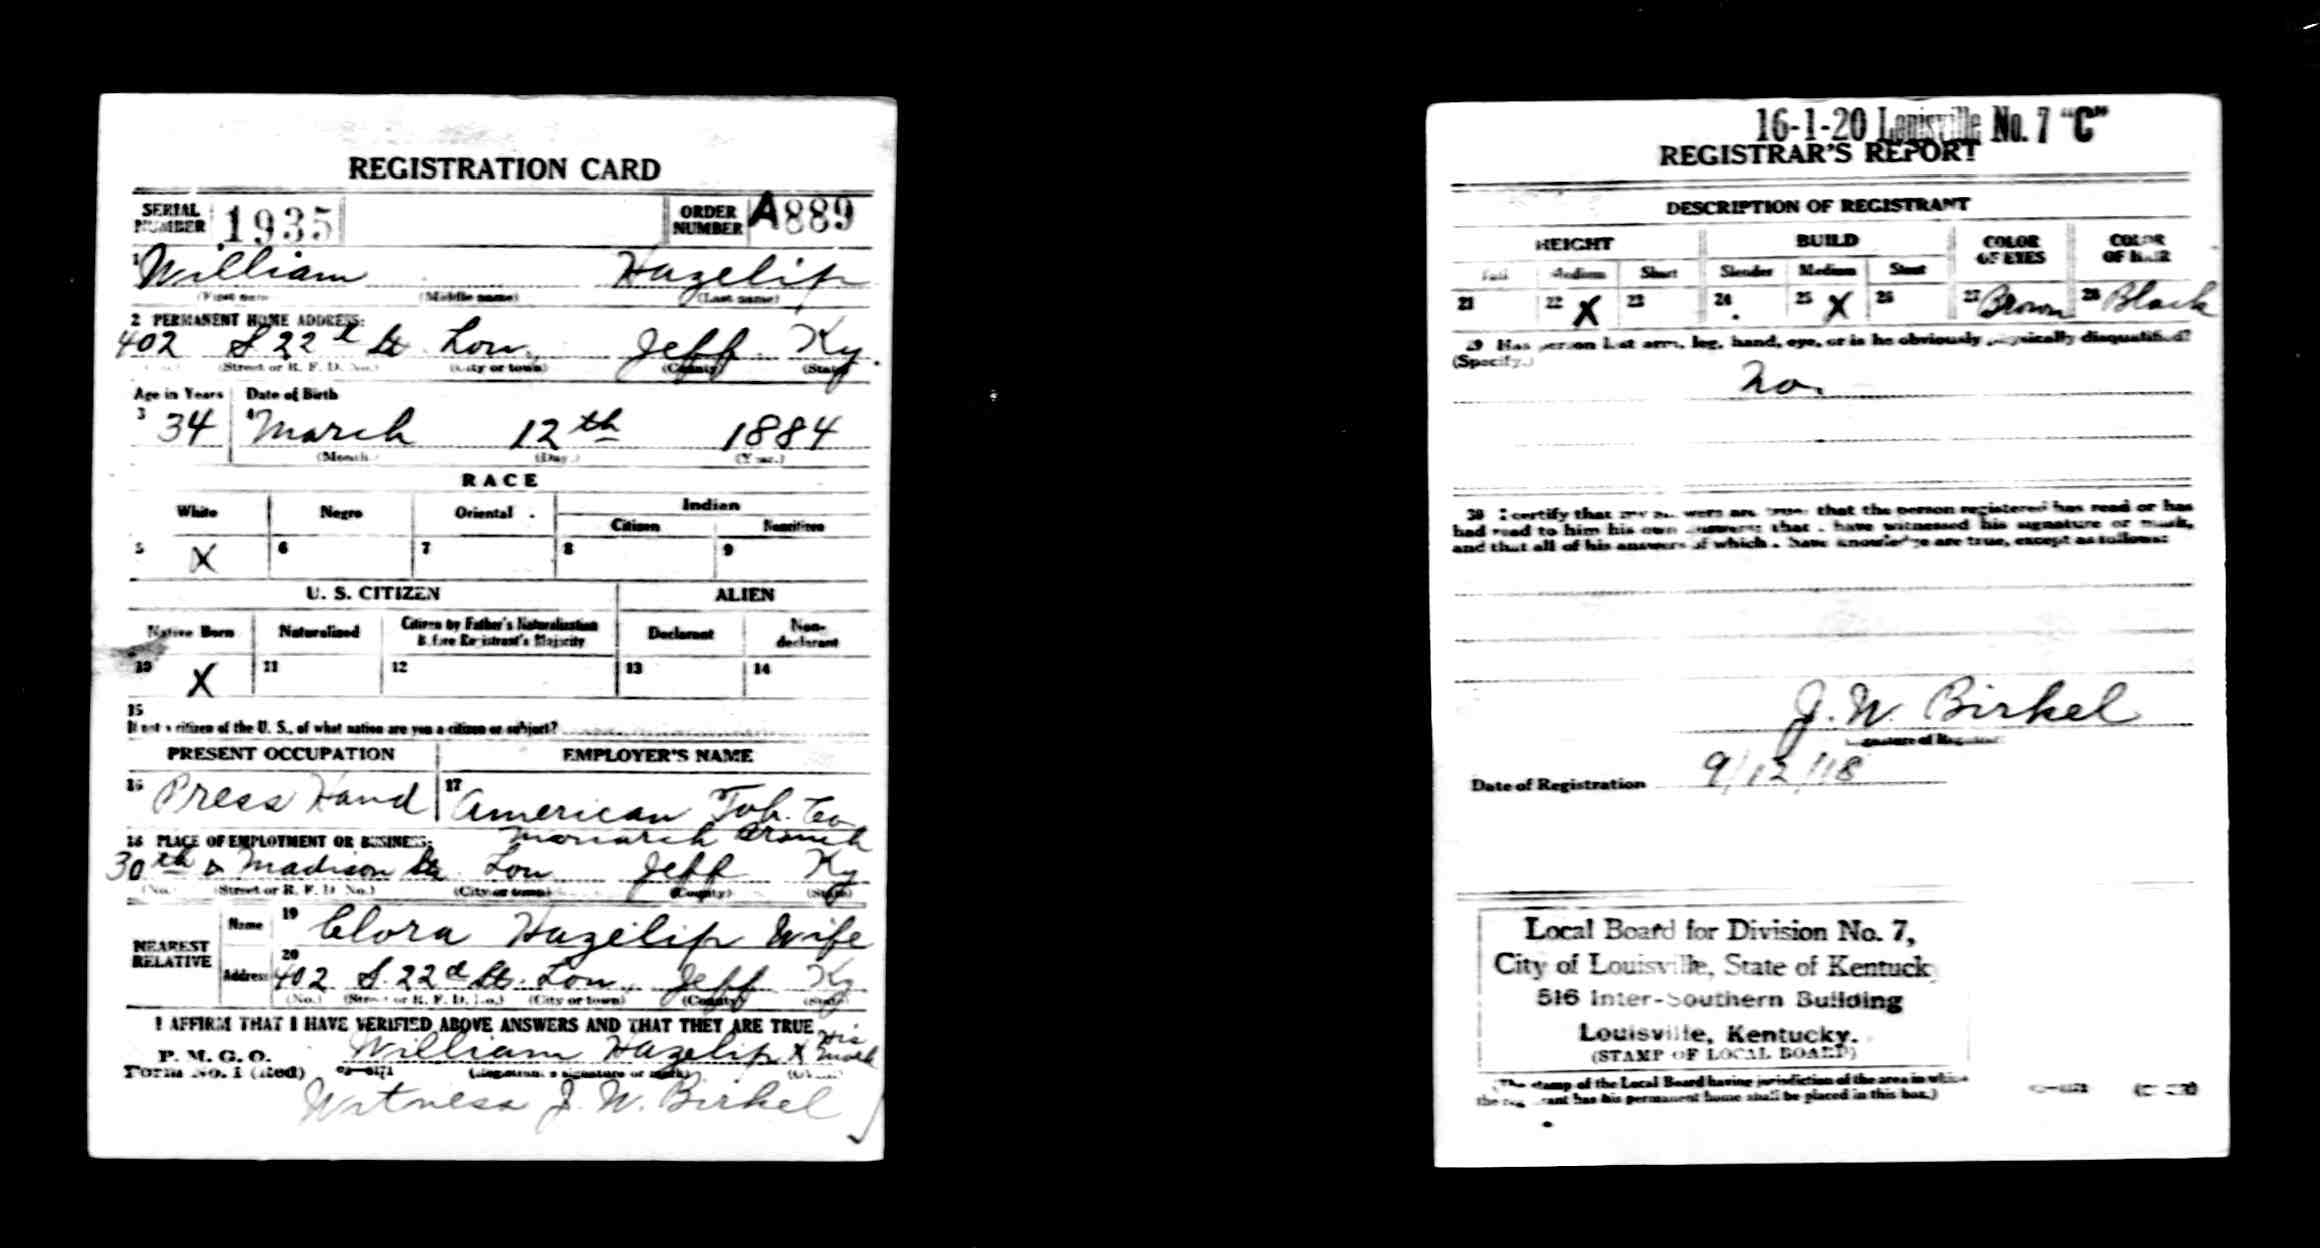 REGISTRATION CARD
SERIAL NUMBER 1935 ORDER NUMBER A889
1 William Hazelip
(First name) (Middle name) (Last name)
2 PERMANENT HOME ADDRESS:
402 S 22d St Lou. Jeff Ky.
(No.) (Street or R. F. D. No.) (City or town) (County) (State)
Age in Years Date of Birth
3 34 4 March 12th 1884
(Month) (Day) (Year)
RACE
White Negro Oriental Indian
Citizen Noncitizen
5 X 6 7 8 9
U. S. CITIZEN ALIEN
Native Born Naturalized Citizen by Father's Naturalization Before Registrant's Majority Declarant Non-declarant
10 X 11 12 13 14
15
If not a citizen of the U. S., of what nation are you a citizen or subject?
PRESENT OCCUPATION EMPLOYER'S NAME
16 Press Hand 17 American Tob. Co
Monarch Branch
18 PLACE OF EMPLOYMENT OR BUSINESS:
30th & Madison Sts Lou Jeff Ky
(No.) (Street or R. F. D. No.) (City or town) (County) (State)
NEAREST RELATIVE
Name 19 Clora Hazelip Wife
Address 20 402 S. 22d St. Lou. Jeff Ky
(No.) (Street or R. F. D. No.) (City or town) (County) (State)
I AFFIRM THAT I HAVE VERIFIED ABOVE ANSWERS AND THAT THEY ARE TRUE
P. M. G. O.
Form No. 1 (Red) William Hazelip X His mark
(Registrant's signature or mark)
Witness J. W. Birkel
16-1-20 Louisville No. 7 "C"
REGISTRAR'S REPORT
DESCRIPTION OF REGISTRANT
HEIGHT BUILD COLOR OF EYES COLOR OF HAIR
Tall Medium Short Slender Medium Stout
21 22 X 23 24 25 X 26 27 Brown 28 Black
29 Has person lost arm, leg, hand, eye, or is he obviously physically disqualified?
(Specify.)
No.
30 I certify that my answers are true; that the person registered has read or has
had read to him his own answers; that I have witnessed his signature or mark,
and that all of his answers of which I have knowledge are true, except as follows:
J. W. Birkel
(Signature of Registrar)
Date of Registration 9/12/18
Local Board for Division No. 7,
City of Louisville, State of Kentucky
516 Inter-Southern Building
Louisville, Kentucky.
(STAMP OF LOCAL BOARD)
(The stamp of the Local Board having jurisdiction of the area in which
the registrant has his permanent home shall be placed in this box.)